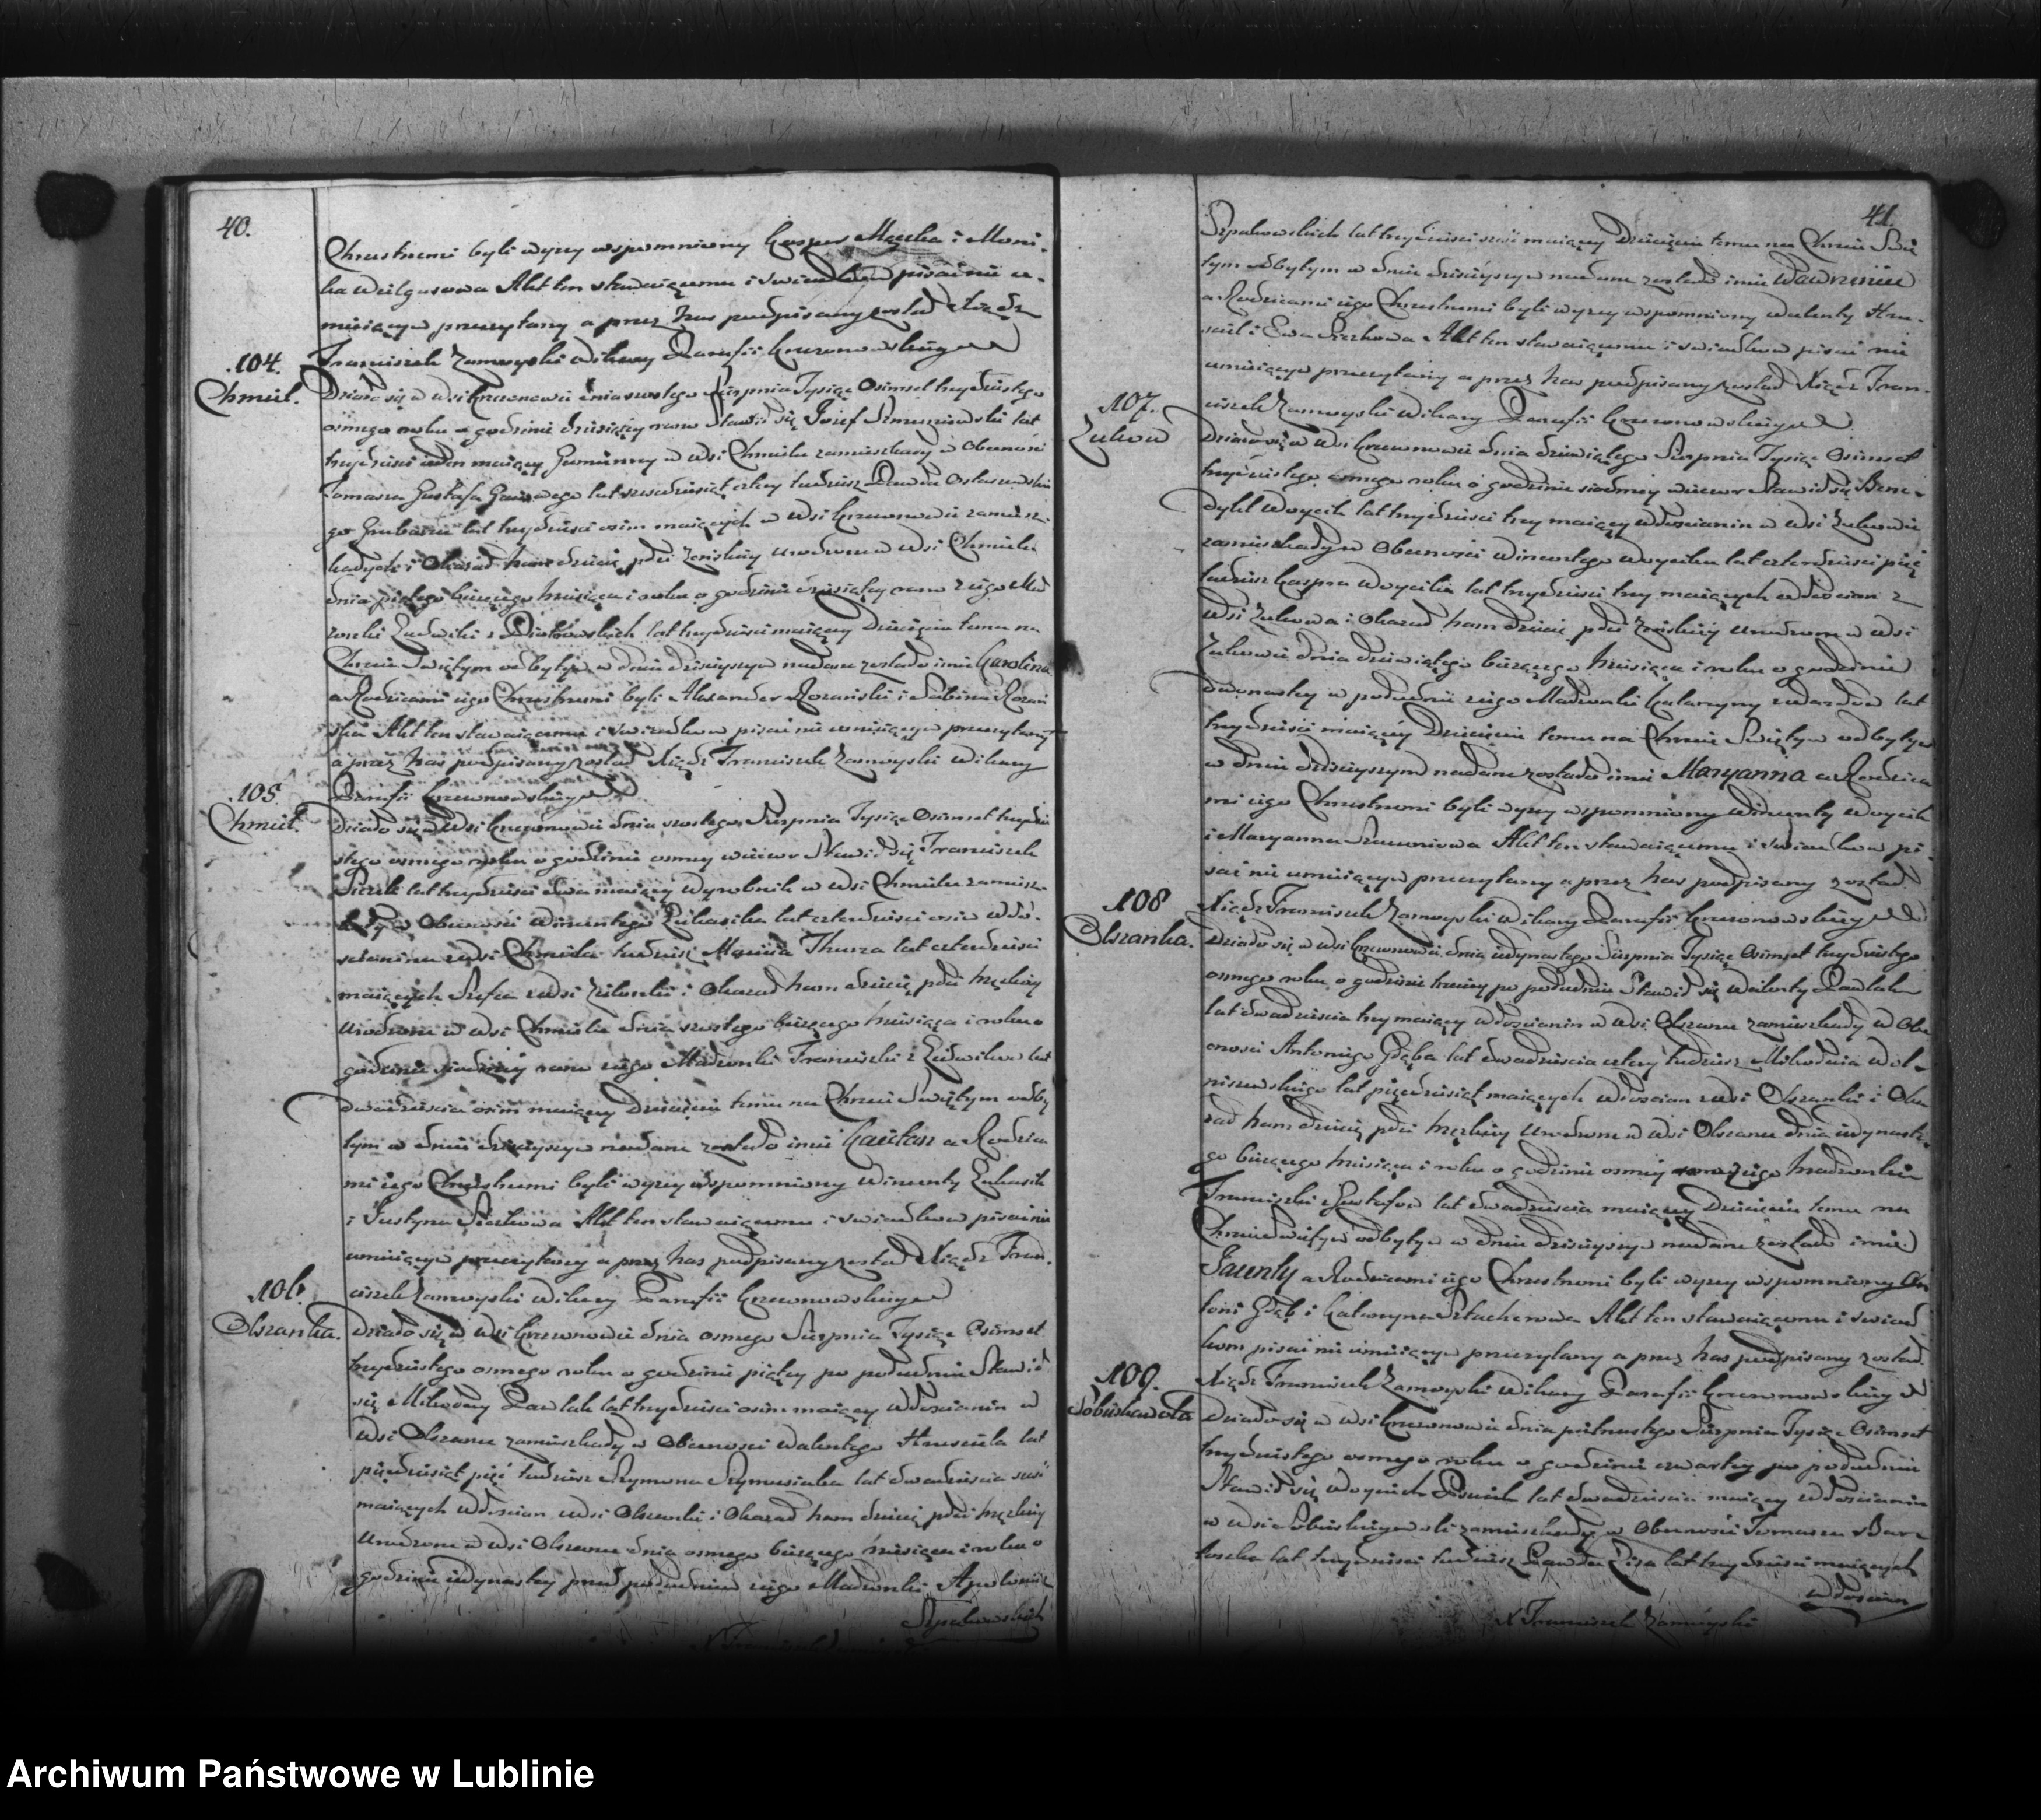 40.
Chrzestnemi byli wyżey wspomniony Kasper Mącka i Moni-
ka Wielgusowa Akt ten stawaiącemu i świadkom pisać nie u-
mieiącym przeczytany a przez Nas podpisany został Xiądz
Franciszek Zamoyski Wikary Parafii Krzczonowskiey
104.
Chmiel.
Działo się w Wsi Krzczonowie dnia szóstego Sierpnia Tysiąc Osimset trzydziestego
osmego roku o godzinie dziesiątey rano Stawił się Jozef lat
trzydzieści ieden maiący Gumienny w Wsi Chmielu zamieszkały w Obecności
Tomasza Gustafa lat sześćdziesiąt cztery tudzież Pawła
go Grabarza lat trzydzieści osim maiących w Wsi Krzczonowie zamiesz-
kałych i Okazał Nam dziecię płci żeńskiey urodzone w Wsi Chmielu
dnia piątego bieżącego Miesiąca i roku o godzinie dziesiątey rano z iego Mał
żonki Ludwiki z lat trzydzieści maiącey Dziecięciu temu na
Chrzcie Świętym odbytym w dniu dzisieyszym nadane zostało imie Karolina
a Rodzicami iego Chrzestnemi byli Alexander Rozański i Sabina Rozań
ska Akt ten stawaiącemu i świadkom pisać nie umieiącym przeczytany
a przez Nas podpisany został Xiądz Franciszek Zamoyski Wikary
Parafii Krzczonowskiey
105.
Chmiel.
Działo się w Wsi Krzczonowie dnia szóstego Sierpnia Tysiąc Osimset trzydzie
stego osmego roku o godzinie osmey wieczor Stawił się Franciszek
lat trzydzieści dwa maiący Wyrobnik w Wsi Chmielu zamiesz-
kały w Obecności Wincentego Łukasika lat czterdzieści osim Wło-
scianina z Wsi Chmiela tudzież Macieia Thurza lat czterdzieści
maiących z Wsi i Okazał Nam dziecię płci męzkiey
urodzone w Wsi Chmielu dnia szóstego bieżącego Miesiąca i roku o
godzinie siodmey rano z iego Małżonki Franciszki z lat
dwadzieścia osim maiącey Dziecięciu temu na Chrzcie Świętym odby
tym w dniu dzisieyszym nadane zostało imie Kaietan a Rodzica
mi iego Chrzestnemi byli wyżey wspomniony Wincenty Łukasik
i Justyna Akt ten stawaiącemu i świadkom pisać nie
umieiącym przeczytany a przez Nas podpisany został Xiądz Fran-
ciszek Zamoyski Wikary Parafii Krzczonowskiey
106.
Olszanka.
Działo się w Wsi Krzczonowie dnia osmego Sierpnia Tysiąc Osimset
trzydziestego osmego roku o godzinie piątey po południu Stawił
się Mikołay Pawlak lat trzydzieści osim maiący Włoscianin w
Wsi Olszance zamieszkały w Obecności Walentego lat
pięćdziesiąt pięć tudzież Szymona Szymusiaka lat dwadzieścia sześć
maiących Włoscian z Wsi Olszanki i Okazał Nam dziecię płci męzkiey
urodzone w Wsi Olszance dnia osmego bieżącego miesiąca i roku o
godzinie iedynastey przed południem z iego Małżonki Apolonii z
Szpakowskich
41.
Szpakowskich lat trzydzieści sześć maiącey Dziecięciu temu na Chrzcie Świę
tym odbytym w dniu dzisieyszym nadane zostało imie Wawrzeniec
a Rodzicami iego Chrzestnemi byli wyżey wspomniony Walenty
i Ewa Akt ten stawaiącemu i świadkom pisać nie
umieiącym przeczytany a przez Nas podpisany został Xiądz Fran-
ciszek Zamoyski Wikary Parafii Krzczonowskiey
107.
Żuków
Działo się w Wsi Krzczonowie dnia dziewiątego Sierpnia Tysiąc Osimset
trzydziestego osmego roku o godzinie siodmey wieczor Stawił się Bene-
dykt Woycik lat trzydzieści trzy maiący Włoscianin w Wsi Żukowie
zamieszkały w Obecności Wincentego Woycika lat czterdzieści pięć
tudzież Kaspra Woycika lat trzydzieści trzy maiących Włoscian z
Wsi Żukowa i Okazał Nam dziecię płci żeńskiey urodzone w Wsi
Żukowie dnia dziewiątego bieżącego Miesiąca i roku o godzinie
dwunastey w południe z iego Małżonki Katarzyny z lat
trzydzieści maiącey Dziecięciu temu na Chrzcie Świętym odbytym
w dniu dzisieyszym nadane zostało imie Maryanna a Rodzica
mi iego Chrzestnemi byli wyżey wspomniony Wincenty Woycik
i Maryanna Akt ten stawaiącemu i świadkom pi-
sać nie umieiącym przeczytany a przez Nas podpisany został
Xiądz Franciszek Zamoyski Wikary Parafii Krzczonowskiey
108
Olszanka.
Działo się w Wsi Krzczonowie dnia iedynastego Sierpnia Tysiąc Osimset trzydziestego
osmego roku o godzinie trzeciey po południu Stawił się Walenty Pawlak
lat dwadzieścia trzy maiący Włoscianin w Wsi Olszance zamieszkały w Obe
cności Antoniego Głąba lat dwadzieścia cztery tudzież Mikołaia
lat pięćdziesiąt maiących Włoscian z Wsi Olszanki i Oka
zał Nam dziecię płci męzkiey urodzone w Wsi Olszance dnia iedynaste-
go bieżącego Miesiąca i roku o godzinie osmey rano z iego Małżonki
Franciszki z Gustafow lat dwadzieścia maiącey Dziecięciu temu na
Chrzcie Świętym odbytym w dniu dzisieyszym nadane zostało imie
Jacenty a Rodzicami iego Chrzestnemi byli wyżey wspomniony An
toni Głąb i Katarzyna Akt ten stawaiącemu i świad
kom pisać nie umieiącym przeczytany a przez Nas podpisany został
Xiądz Franciszek Zamoyski Wikary Parafii Krzczonowskiey
109.
Sobieska wola
Działo się w Wsi Krzczonowie dnia piętnastego Sierpnia Tysiąc Osimset
trzydziestego osmego roku o godzinie czwartey po południu
Stawił się Woyciech lat dwadzieścia maiący Włoscianin
w Wsi Sobieskiey woli zamieszkały w Obecności Tomasza Bar-
toszka lat trzydzieści tudzież Pawła Lisa lat trzydzieści maiących
Włoscian
X Franciszek Zamoyski
Archiwum Państwowe w Lublinie